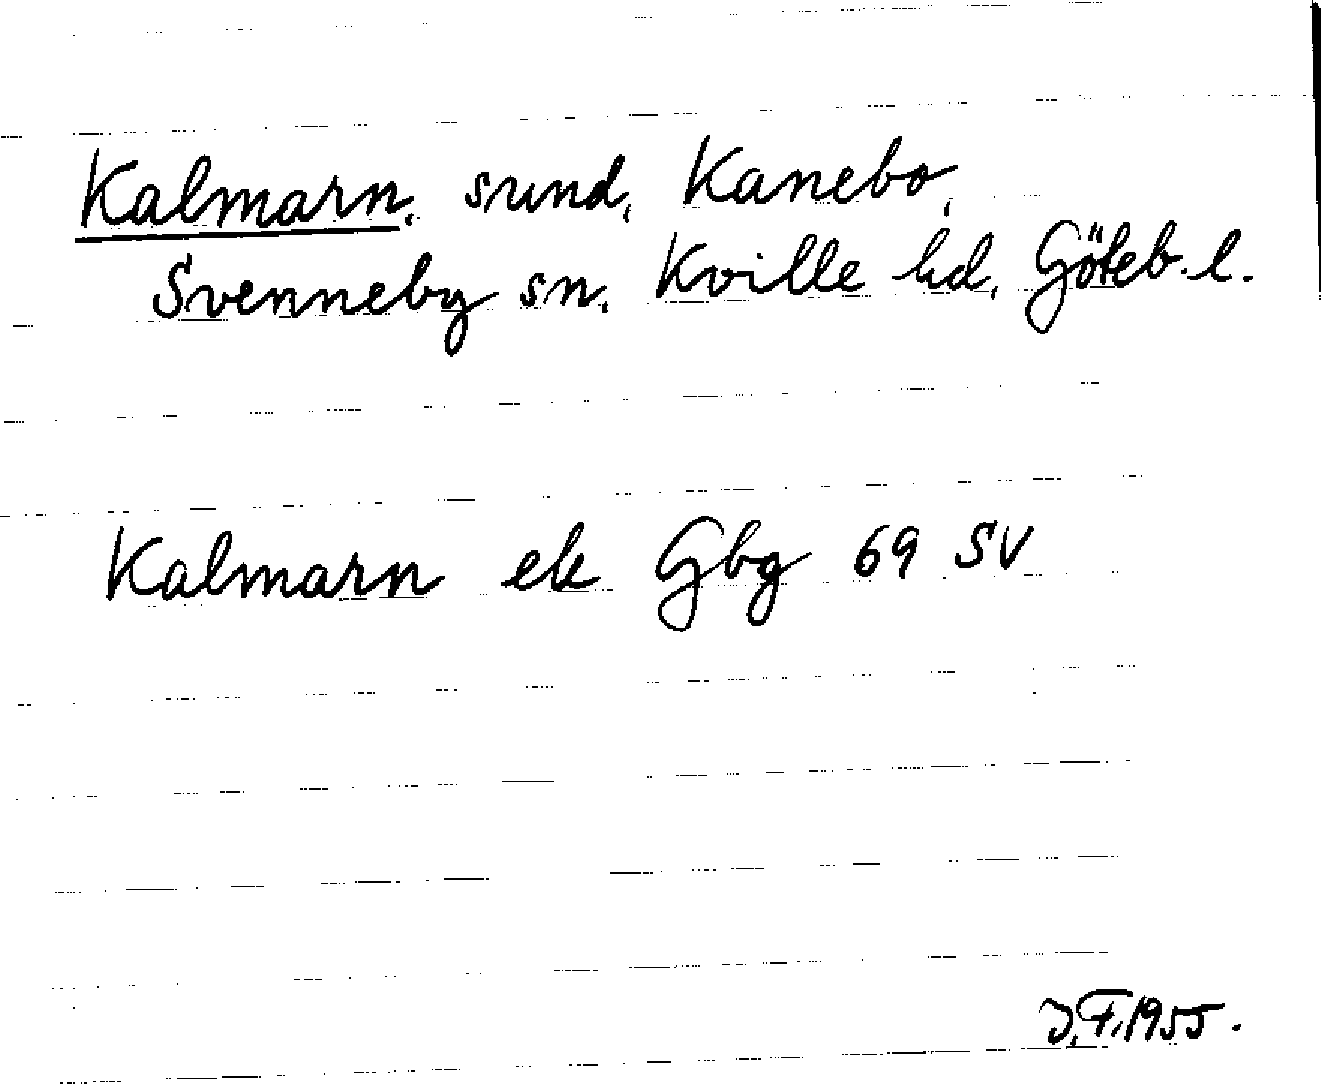 Kalmarn, sund, Kanebo,
Svenneby sn, Kville hd, Göteb. l.
Kalmarn ek Gbg 69 SV
J.F. 1955.